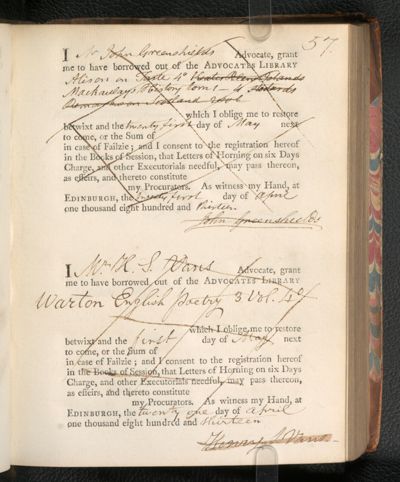 57.
I Mr John Greenshields Advocate, grant
me to have borrowed out of the ADVOCATES LIBRARY
Alison on Taste 4°
Mackaulays History tom 1 – 4
Remarks on Scotland 2 vol
which I oblige me to restore
betwixt and the twenty first day of May next
to come, or the Sum of
in case of Failzie; and I consent to the registration hereof
in the Books of Session, that Letters of Horning on six Days
Charge, and other Executorials needful, may pass thereon,
as effeirs, and thereto constitute
my Procurators. As witness my Hand, at
EDINBURGH, the twenty first day of April
one thousand eight hundred and thirteen
John Greenshields
I Mr H. S. Vans Advocate, grant
me to have borrowed out of the ADVOCATES LIBRARY
Warton English Poetry 3 Vol. 4°
which I oblige me to restore
betwixt and the first day of May next
to come, or the Sum of
in case of Failzie; and I consent to the registration hereof
in the Books of Session, that Letters of Horning on six Days
Charge, and other Executorials needful, may pass thereon,
as effeirs, and thereto constitute
my Procurators. As witness my Hand, at
EDINBURGH, the twenty one day of April
one thousand eight hundred and thirteen
Henry S Vans